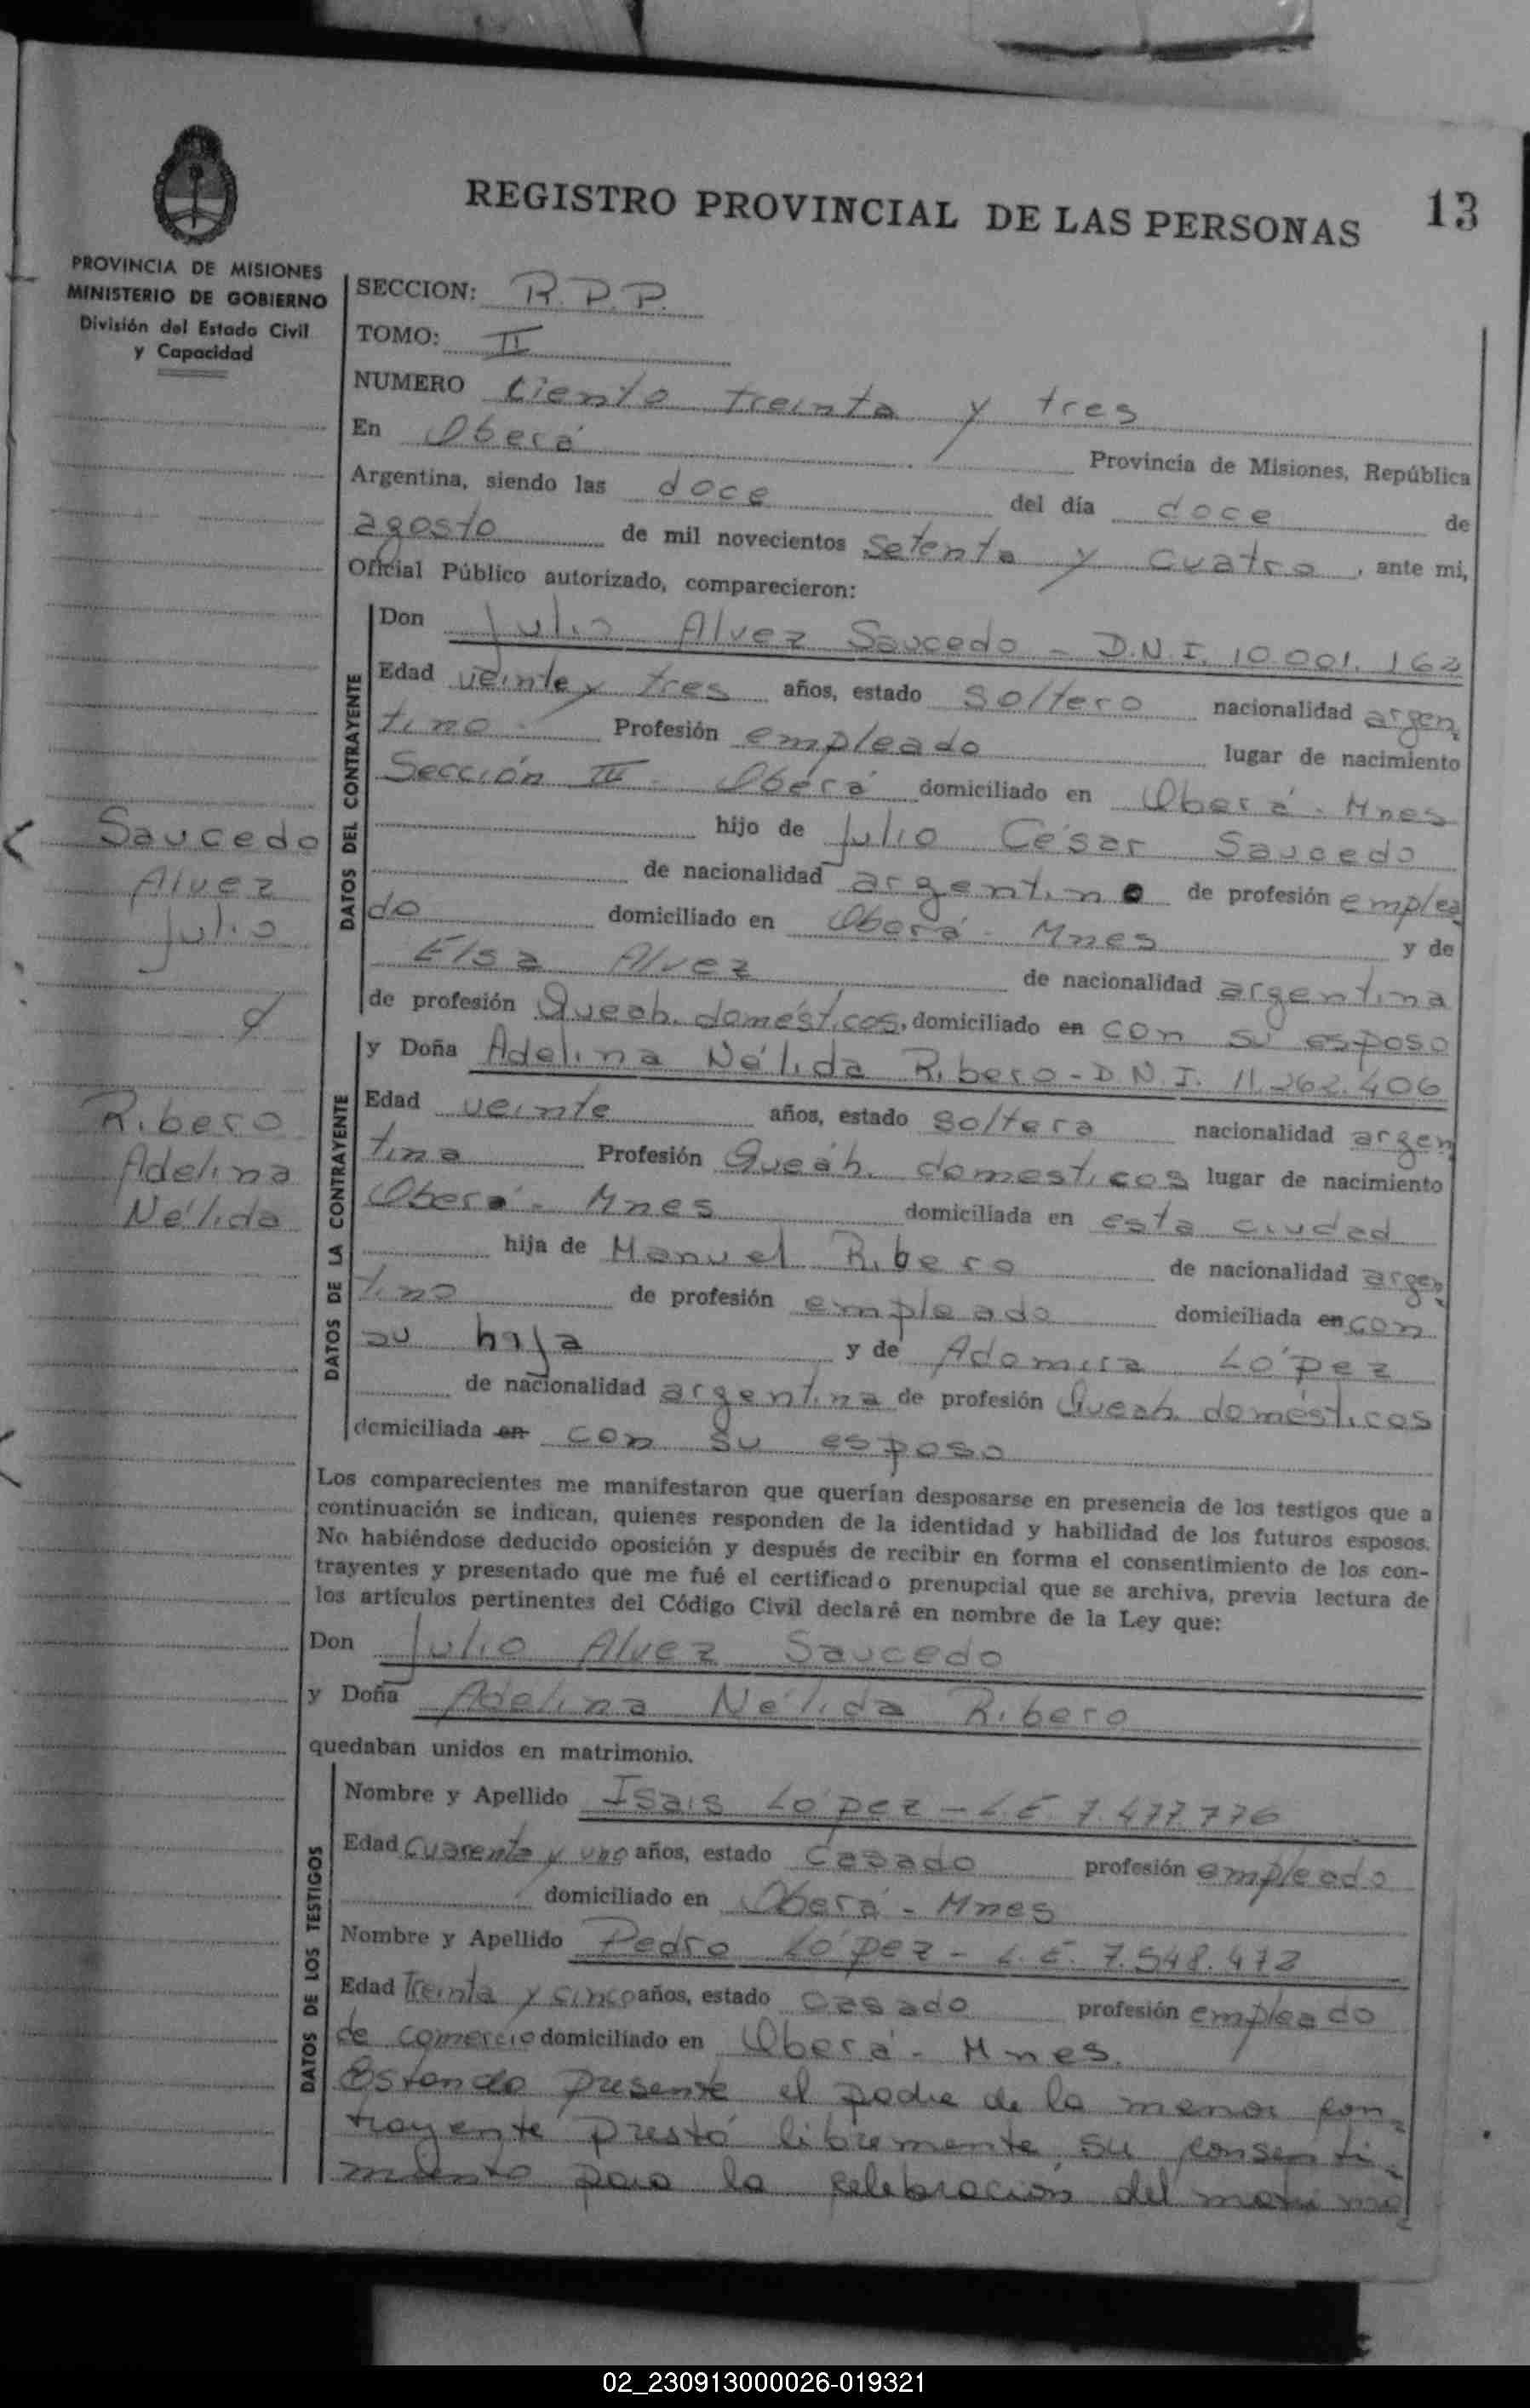 REGISTRO PROVINCIAL DE LAS PERSONAS 13
PROVINCIA DE MISIONES
MINISTERIO DE GOBIERNO
División del Estado Civil
y Capacidad
SECCION: R.P.P.
TOMO: II
NUMERO Ciento treinta y tres
En Oberá Provincia de Misiones, República
Argentina, siendo las doce del día doce de
agosto de mil novecientos setenta y cuatro, ante mi,
Oficial Público autorizado, comparecieron:
DATOS DEL CONTRAYENTE
Don Julio Alvez Saucedo - D.N.I. 10.001.162
Edad veinte y tres años, estado soltero nacionalidad argen
tino - Profesión empleado lugar de nacimiento
Sección III - Oberá domiciliado en Oberá - Mnes
hijo de Julio César Saucedo
de nacionalidad argentino de profesión emplea
do domiciliado en Oberá - Mnes y de
Elsa Alvez de nacionalidad argentina
de profesión Queah. domésticos, domiciliado en con su esposo
Saucedo
Alvez
Julio
y
Ribero
Adelina
Nélida
DATOS DE LA CONTRAYENTE
y Doña Adelina Nélida Ribero - D.N.I. 11.262.406
Edad veinte años, estado soltera nacionalidad argen
tina Profesión Queah. domesticos lugar de nacimiento
Oberá - Mnes domiciliada en esta ciudad
hija de Manuel Ribero de nacionalidad argen
tino de profesión empleado domiciliada en con
su hija y de Adomira López
de nacionalidad argentina de profesión Queah. domésticos
domiciliada en con su esposo
Los comparecientes me manifestaron que querían desposarse en presencia de los testigos que a
continuación se indican, quienes responden de la identidad y habilidad de los futuros esposos.
No habiéndose deducido oposición y después de recibir en forma el consentimiento de los con-
trayentes y presentado que me fué el certificado prenupcial que se archiva, previa lectura de
los artículos pertinentes del Código Civil declaré en nombre de la Ley que:
Don Julio Alvez Saucedo
y Doña Adelina Nélida Ribero
quedaban unidos en matrimonio.
DATOS DE LOS TESTIGOS
Nombre y Apellido Isais López - L.E. 7.477.776
Edad Cuarenta y uno años, estado casado profesión empleado
domiciliado en Oberá - Mnes
Nombre y Apellido Pedro López - L.E. 7.548.472
Edad Treinta y cinco años, estado casado profesión empleado
de comercio domiciliado en Oberá - Mnes.
Estando presente el padre de la menor con-
trayente prestó libremente su consenti-
miento para la celebración del matrimo-
02_230913000026-019321